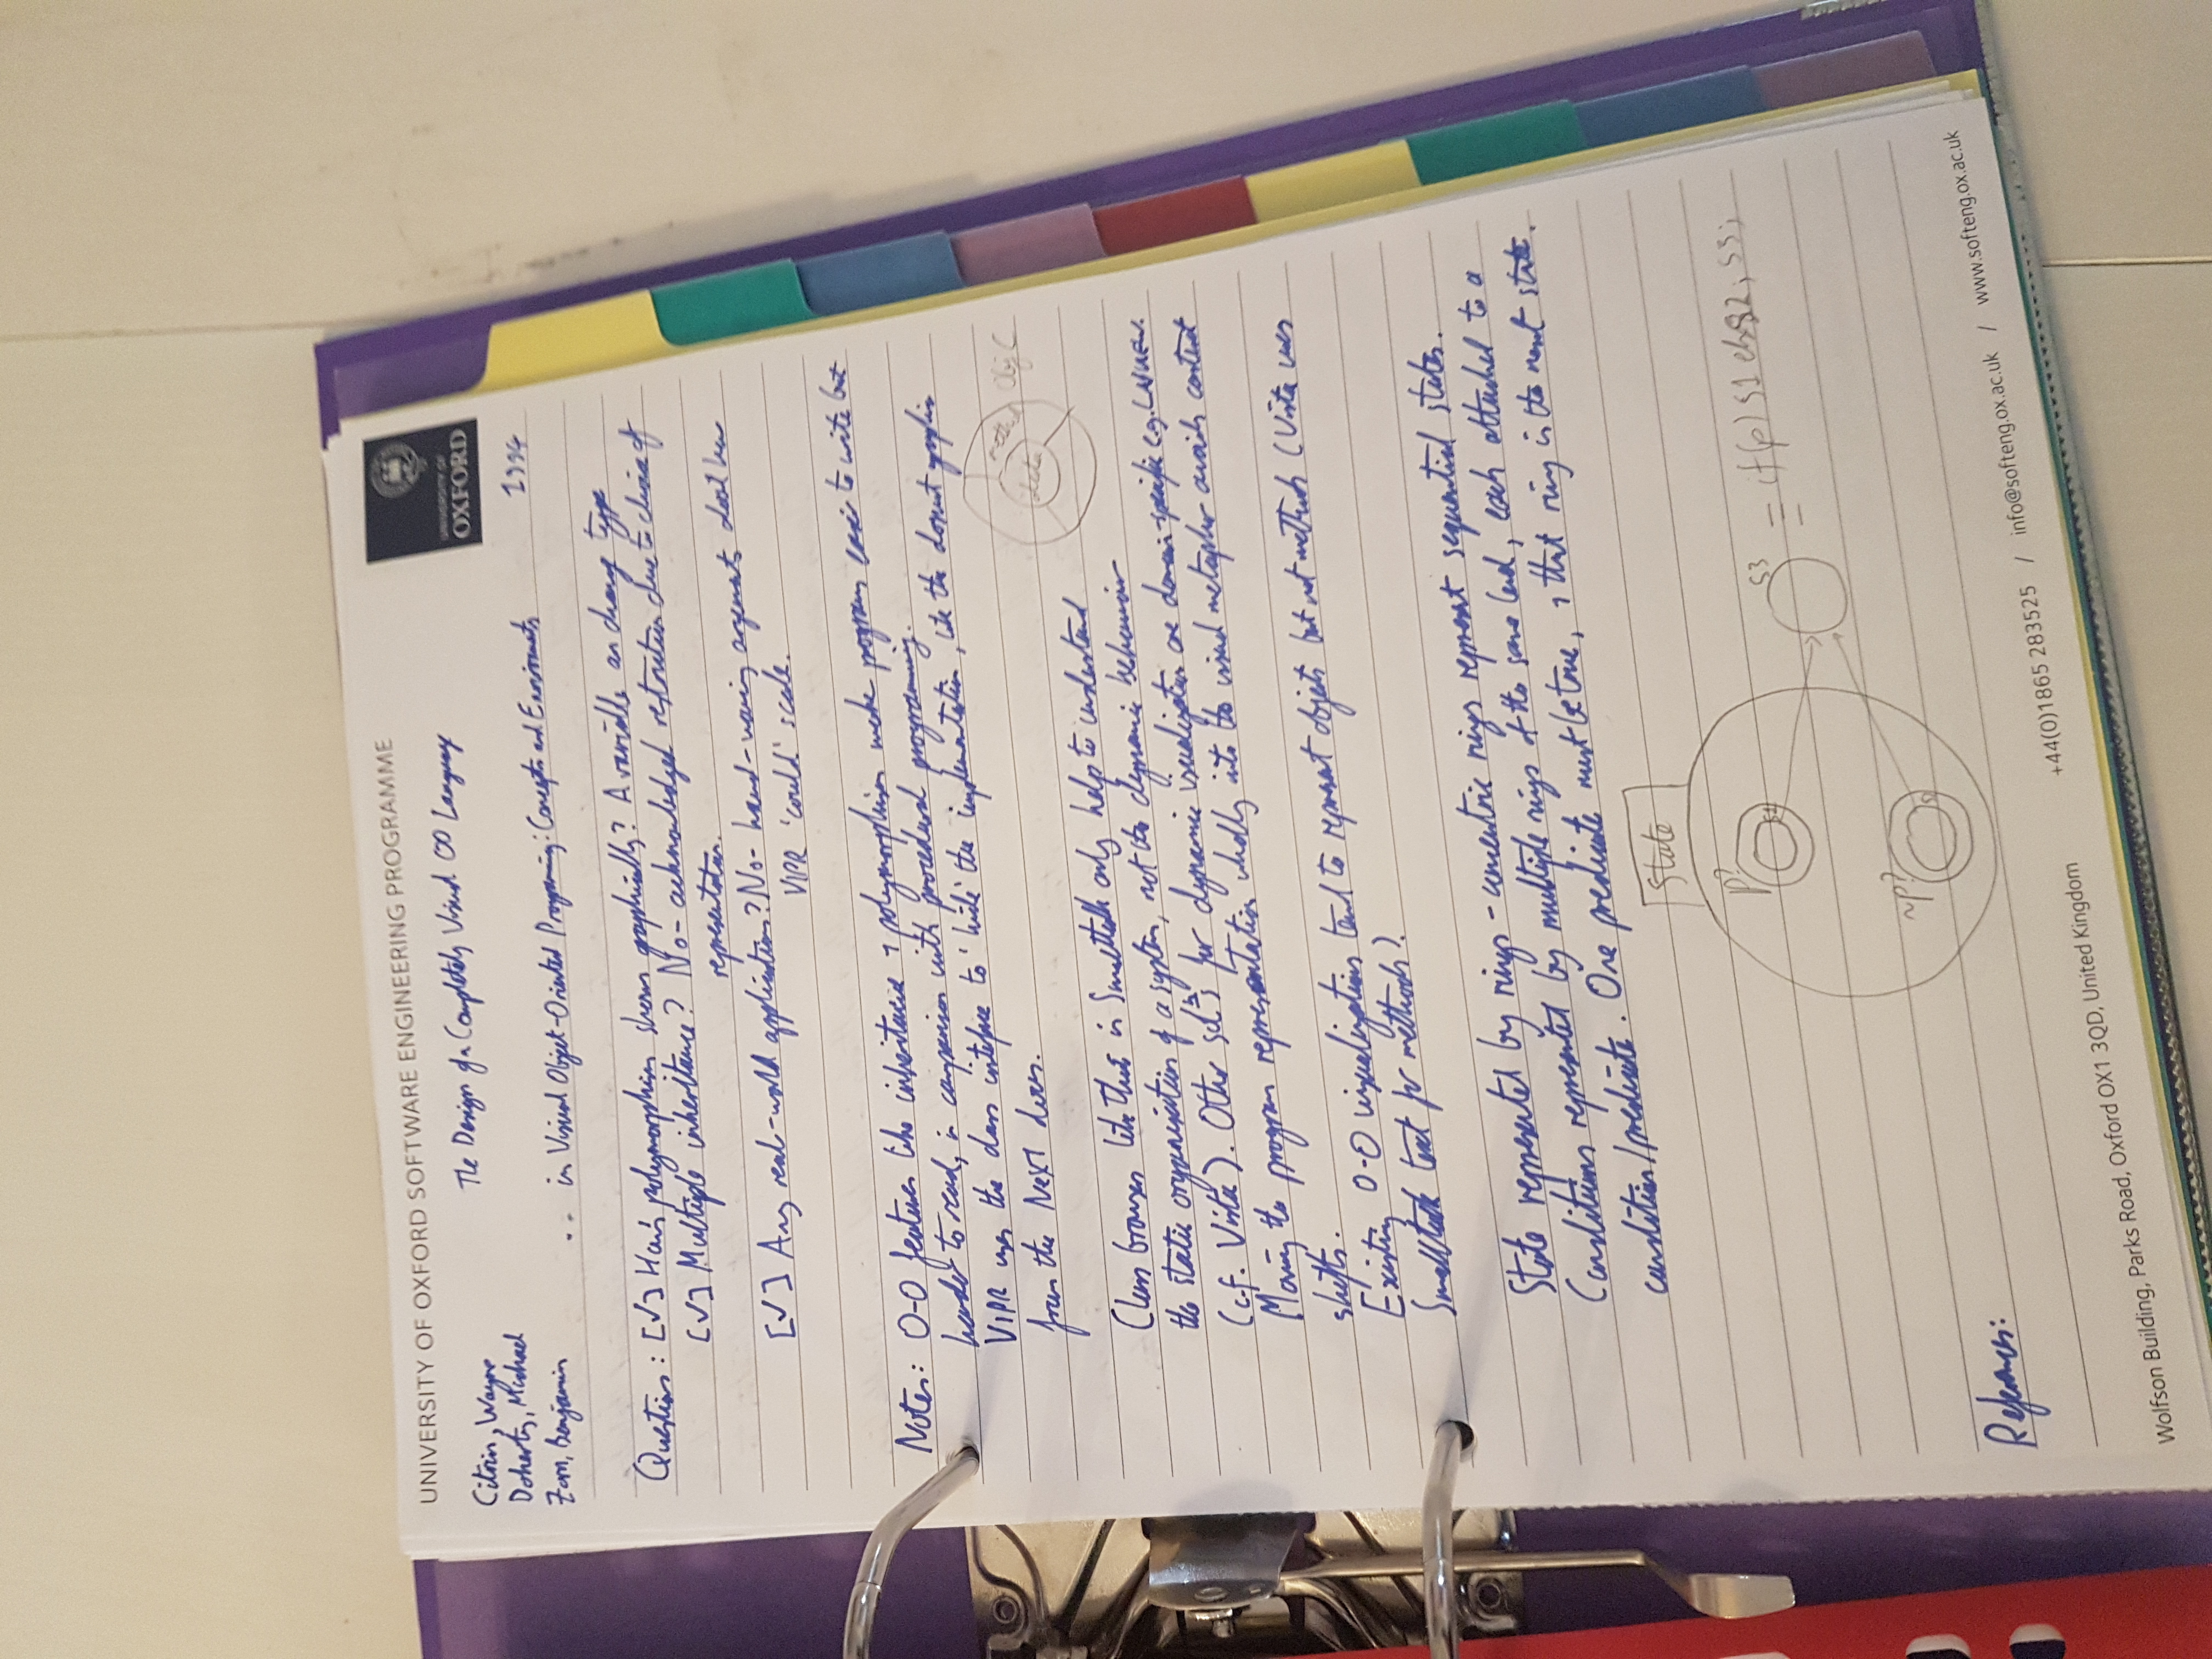 UNIVERSITY OF OXFORD SOFTWARE ENGINEERING PROGRAMME
UNIVERSITY OF
OXFORD
Citrin, Wayne
Doherty, Michael
Zorn, Benjamin
The Design of a Completely Visual OO Language
1994
... in Visual Object-Oriented Programming: Concepts and Environments
Questions: [✓] How's polymorphism shown graphically? A variable can change type
[✓] Multiple inheritance? No - acknowledged restriction due to choice of
representation.
[✓] Any real-world applications? No - hand-waving arguments about how
VIPR 'could' scale.
Notes: O-O features like inheritance & polymorphism make programs easier to write but
harder to read, in comparison with procedural programming.
VIPR uses the class interface to 'hide' the implementation, like the donut graphic
from the NeXT docs.
data
method
Obj C
Class browsers like that in Smalltalk only help to understand
the static organisation of a system, not the dynamic behaviour
(c.f. Vista). Other sol'ns for dynamic visualization are domain-specific e.g. LabVIEW.
Moving the program representation wholly into the visual metaphor avoids context
shifts.
Existing O-O visualizations tend to represent objects but not methods (Vista uses
Smalltalk text for methods).
State represented by rings - concentric rings represent sequential states.
Conditions represented by multiple rings at the same level, each attached to a
condition/predicate. One predicate must be true, & that ring is the next state.
State
p?
s1
~p?
s2
s3
= if (p) s1 else s2; s3;
References:
Wolfson Building, Parks Road, Oxford OX1 3QD, United Kingdom
+44(0)1865 283525 / info@softeng.ox.ac.uk / www.softeng.ox.ac.uk